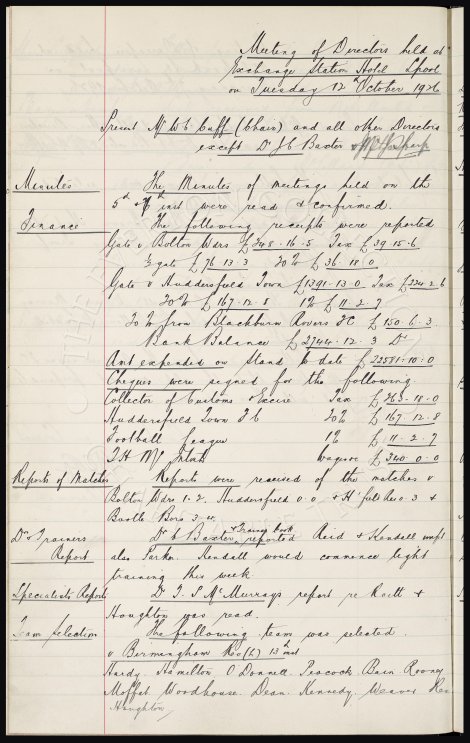 Meeting of Directors held at
Exchange Station Hotel Lpool
on Tuesday 12th October 1926
Present Mr W C Cuff (Chair) and all other Directors
except Dr J C Baxter
Minutes The Minutes of meetings held on the
5th & 7th inst were read & confirmed.
Finance The following receipts were reported
Gate v Bolton Wdrs £348-16-5 Tax £39-15-6
½ gate £76-13-3 20% £36-18-0
Gate v Huddersfield Town £1391-13-0 Tax £224-2-6
20% £167-12-8 1% £11-2-7
20% from Blackburn Rovers FC £150-6-3
Bank Balance £2744-12-3 Dr
Amt expended on Stand to date £22581-10-0
Cheques were signed for the following
Collector of Customs & Excise Tax £263-18-0
Huddersfield Town F C 20% £167-12-8
Football League 1% £11-2-7
T.H. McIntosh wages £340-0-0
Reports of Matches Reports were received of the matches v
Bolton Wdrs 1-2, Huddersfield 0-0 & H'field Res 0-3 &
Bootle Boro
Drs & Trainers Dr Baxter & Trainer Cook reported Reid & Kendall unfit
Report also Parker. Kendall would commence light
training this week
Specialists Reports Dr McMurrays report re Raitt &
Houghton was read.
Team Selection The following team was selected
v Birmingham Res (h) 13th inst
Hardy. Hamilton O'Donnell. Peacock Bain Rooney
Moffat Woodhouse. Dean. Kennedy. Weaver Res
Houghton